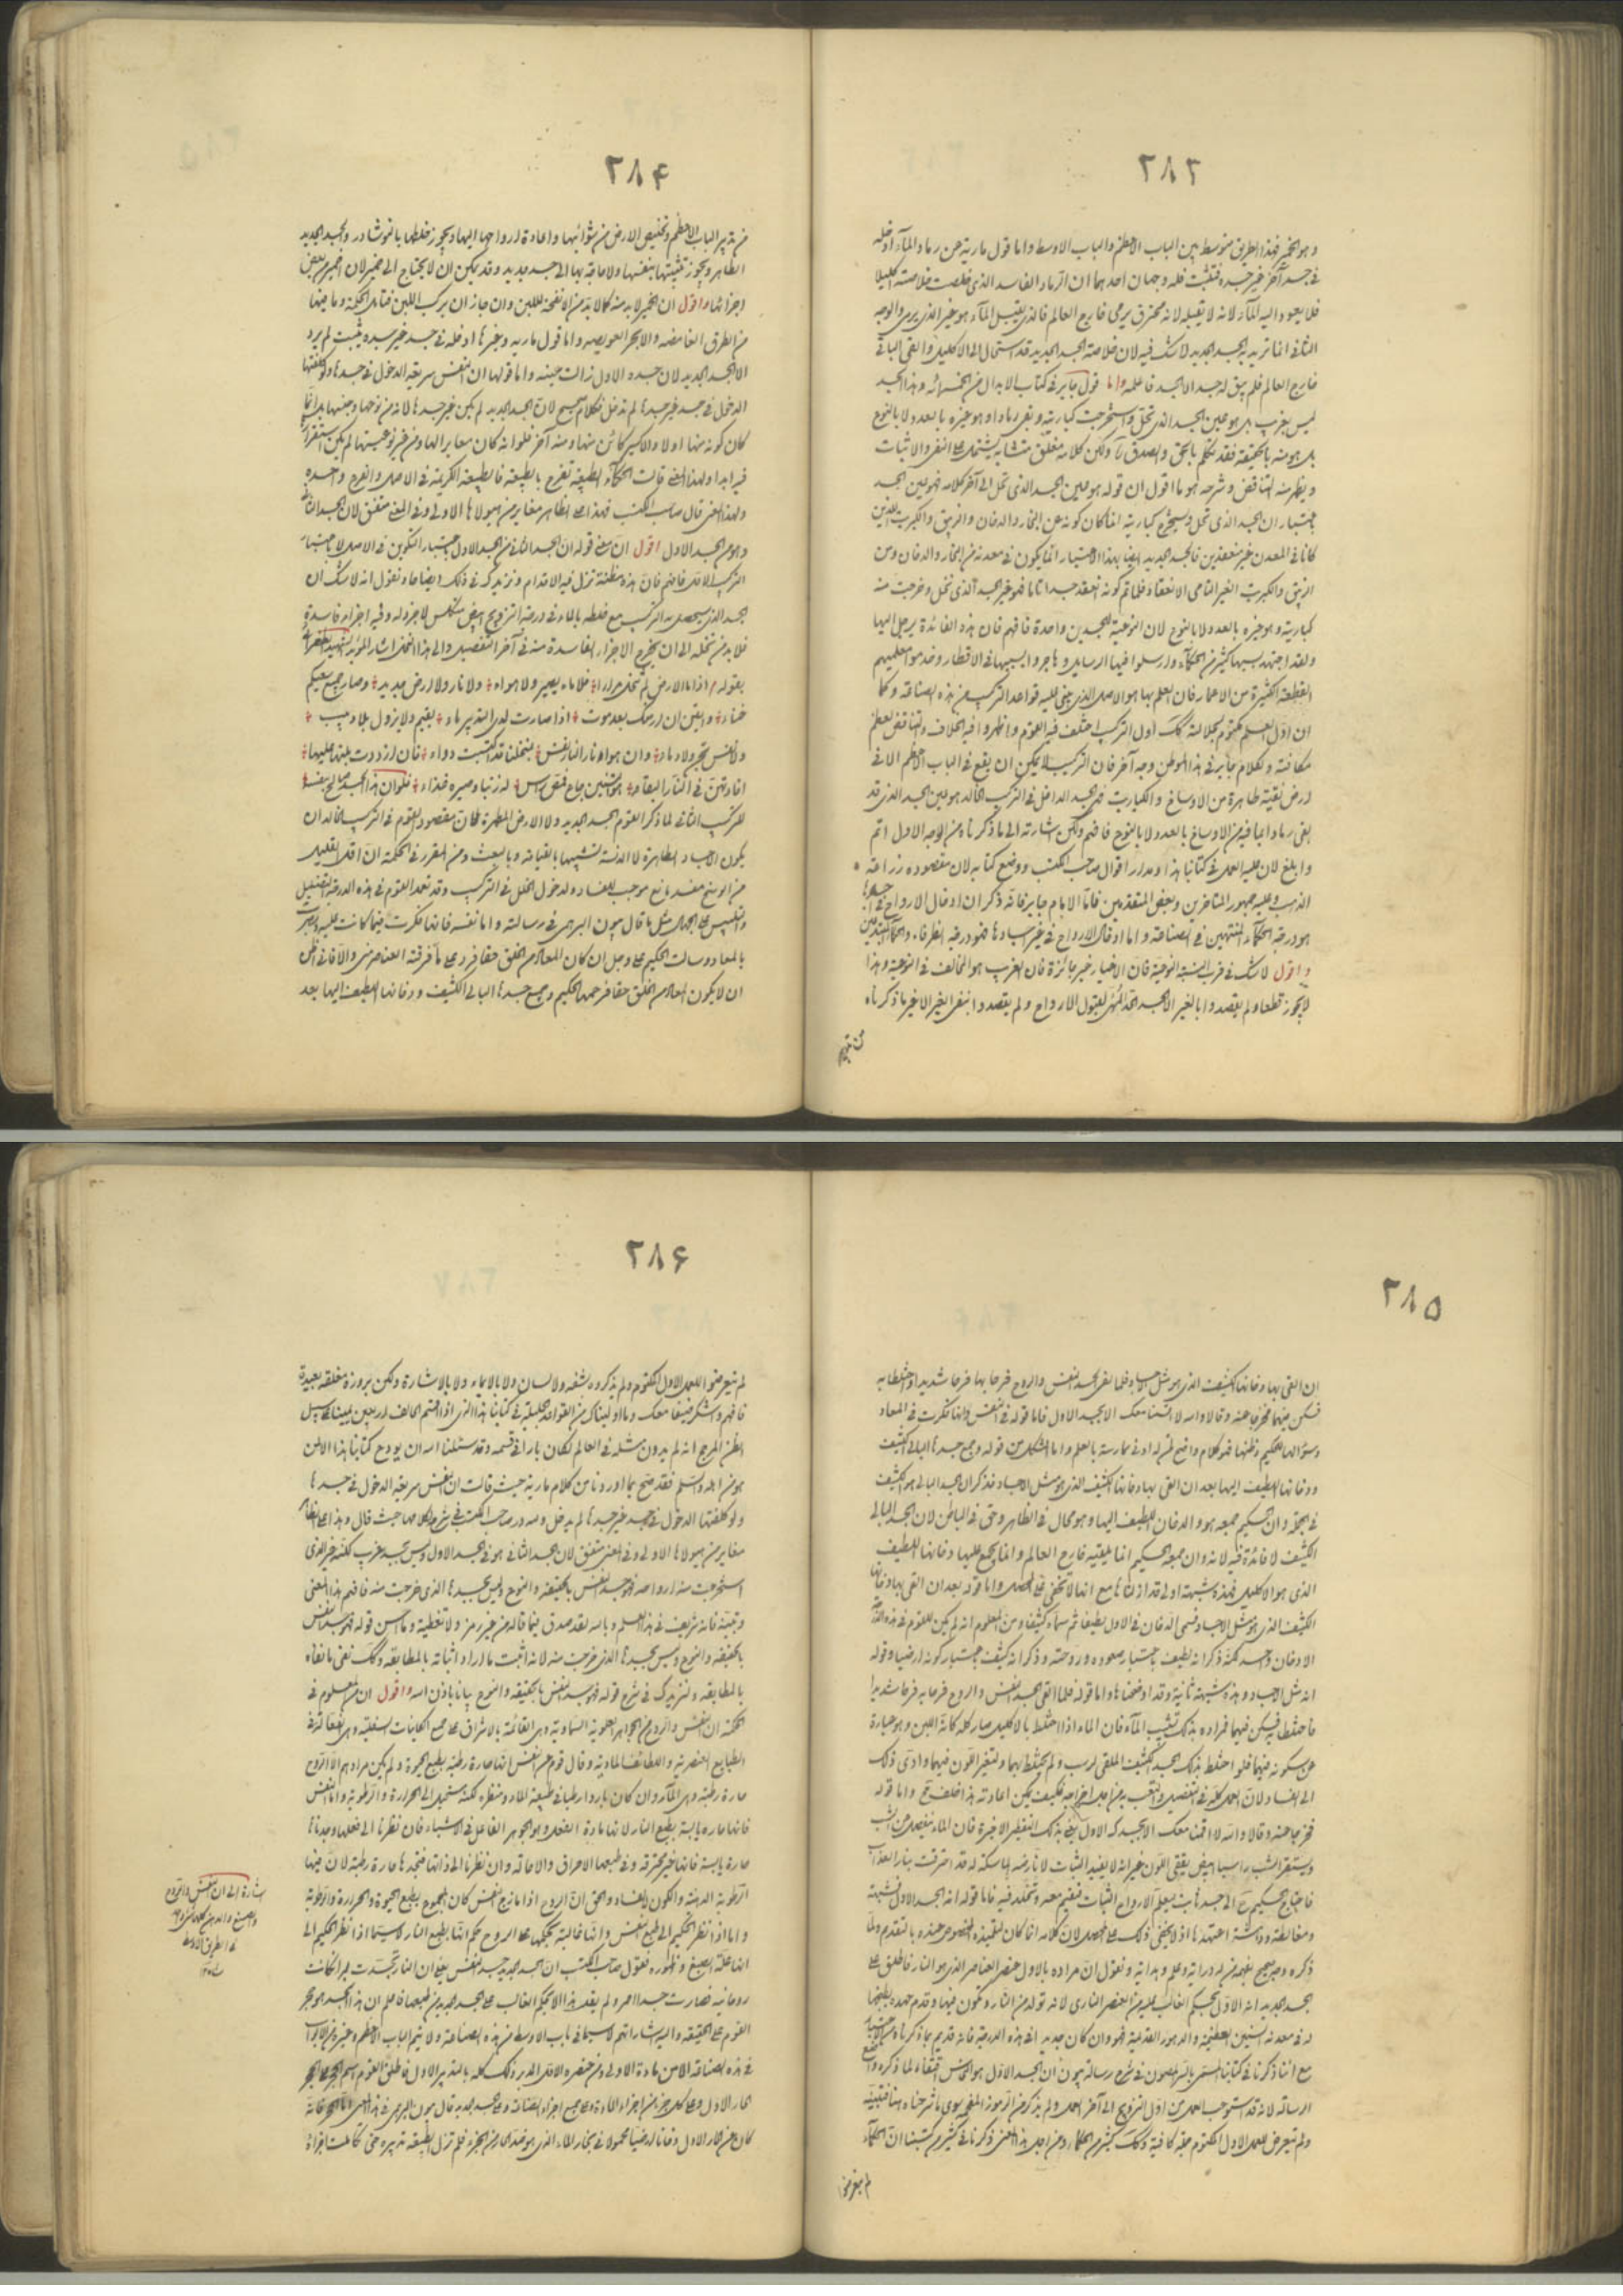 ٢٨٣
وهو الخير فهذا الطريق متوسط بين الباب الاعظم والباب الاوسط واما قول مارية عن رماد المآء ادخله
في جسد آخر غير جسده فتثبت فله وجهان احدهما ان الرماد الفاسد الذي خلصت خلاصته اكليلا
فلا يعود اليه المآء لانه لا يقبله لانه محترق يرمى خارج العالم فالذي يقبل المآء هو غير الذي يرمى والوجه
الثاني انما تريد به الجسد الجديد لا شك فيه لان خلاصة الجسد الجديد قد استحال الى الاكليل والقى الباقي
خارج العالم فلم يبق له جسد الا الجسد فاعلمه واما قول جابر في كتاب الابدال من الخمسمائة وهذا الجسد
ليس بغريب بل هو عين الجسد الذي نحل واستخرجت كباريته وبقي رمادا وهو غيره بالعدد ولا بالنوع
بل هو منه بالحقيقة فقد تكلم بالحق والصدق ولكن كلامه مغلق متشابه يشتمل على النفي والاثبات
ويظهر منه التناقض وشرحه هو ما اقول ان قوله هو عين الجسد الذي نحل الى آخر كلامه فهو عين الجسد
باعتبار ان الجسد الذي نحل ويستخرج كباريته انما كان كونه عن البخار والدخان والزيبق والكبريت اللذين
كانا في المعدن غير منعقدين فالجسد الجديد ايضا بهذا الاعتبار انما يكون في معدنه من البخار والدخان ومن
الزيبق والكبريت الغير التامي الانعقاد فلما تم كونه انعقد جسدا تاما فهو غير الجسد الذي نحل وخرجت منه
كباريته وهو غيره بالعدد ولا بالنوع لان النوعية للجسدين واحدة فافهم فان هذه الفائدة يرحل اليها
ولقد اجتهد بسببها كثير من الحكمآء وارسلوا فيها الرسايل وهاجروا بسببها في الاقطار وخدموا معلميهم
القطعة الكثيرة من الاعمار فان العلم بها هو الاصل الذي يبنى عليه قواعد التركيب من هذه الصناعة وكما
ان اول العمل مكتوم لجلالته كك اول التركيب اختلف فيه القوم واظهروا فيه الخلاف والتناقض لعظم
مكانته ولكلام جابر في هذا الموطن وجه آخر فان التركيب لا يمكن ان يقع في الباب الاعظم الا في
ارض نقية طاهرة من الاوساخ والكباريت فهي الجسد الداخل في التركيب الخالد هو عين الجسد الذي قد
بقي رمادا بما فيه من الاوساخ بالعدد ولا بالنوع فافهم ولكن اشارته الى ما ذكرناه من الوجه الاول اتم
وابلغ لان عليه العمل في كتابنا هذا ومدار اقوال صاحب المكتسب ووضع كتابه لان مقصوده زراعة
الذهب وعليه جمهور المتاخرين وبعض المتقدمين فاما الامام جابر فانه ذكر ان ادخال الارواح في اجسادها
هو درجة الحكمآء المنتهين في الصناعة واما ادخال الارواح في غير اجسادها فهو درجة الظرفاء والحكمآء المبتدئين
واقول لا شك في قرب النسبة النوعية فان الاغيار غير جائزة فان الغريب هو المخالف في النوعية وهذا
لا يجوز قطعا ولم يقصدوا بالغير الا الجسد المتهيئ لقبول الارواح ولم يقصدوا بنفي الغير الا غير ما ذكرناه
من تدبير
٢٨۴
من تدبير الباب الاعظم وتخليص الارض من شوائبها واعادة ارواحها اليها ويجوز خلطها بالنوشادر والجسد الجديد
الطاهر ويجوز تثبيتها بنفسها ولا حاجة بها الى جسد جديد وقد يمكن ان لا يحتاج الى خمير لان الخمير من بعض
اجزائها واقول ان الخمير لا بد منه كما لا بد من الانفحة لللبن وان جاز ان يركب اللبن فتامل الحكمة وما فيها
من الطرق الغامضة والابحر العويصه واما قول مارية وغيرها ادخله في جسد غير جسده يثبت لم يرد
الا الجسد الجديد لان جسده الاول زالت عينه واما قولها ان النفس سريعة الدخول في جسدها ولو كلفتها
الدخول في جسد غير جسدها لم تدخل فكلام صحيح لان الجسد الجديد لم يكن غير جسدها لانه من نوعها وجنسها بل انما
كان كونه منها اولا والاكسير كائن منها ومنه آخرا فلو انه كان مغايرا لها ومن غير نوعيتها لم يكن استقرارها
فيه ابدا ولهذا المعنى قالت الحكمآء الطبيعة تفرح بالطبيعة فالطبيعة الكريمة في الاصل والفرع واحدة
ولهذا المعنى قال صاحب المكتسب فهذا على الظاهر مغاير من هيولاها الاولى وفي المعنى متفق لان الجسد الثاني
وهو من الجسد الاول اقول ان معنى قوله ان الجسد الثاني من الجسد الاول باعتبار التكوين في الاصل لا باعتبار
التركيب الا قل فافهم فان هذه مظنة تزل فيه الاقدام ونزيدك في ذلك ايضاحا ونقول انه لا شك ان
الجسد الذي يحصل به التركيب مع خلطه بالماء في درجة التزويج ابيض متكلس لا جزو له وفيه اجزاء فاسدة
فلا بد من تحلله الى ان يخرج الاجزاء الفاسدة منه في آخر التفصيل والى هذا المعنى اشار المؤيد الشهيد الطغرائي
بقوله اذا ما الارض لم تنحل مرارا فلا ماء يصير ولا هواء ولا نار ولا ارض جديد وصار جميع سعيكم
هباء وايقن ان ارضك بعد موت اذا صارت لدى التدبير ماء يقيم ولا يزول بلا دبيب
ونفس تنجو ولا دماء وان هواء نار النار نفس بنحلتنا قد اكتسبت دواء فان ازددت عليها
افادتن في النار البقاء هو التنين جامع فمتى رس له زنبا وصيره غذاء فلو ان هذا الجسد صالح بنفسه
للتركيب الثاني لما ذكر القوم الجسد الجديد ولا الارض المطهرة لكان مقصود القوم في التركيب الخالد ان
يكون الاجساد الطاهرة لا الدنسة لتشبهها بالقيامة والبعث ومن المقرر في الحكمة ان اقل القليل
من الوسخ مفسد مانع موجب للفساد ولدخول الخلل في التركيب وقد تعمد القوم في هذه الدرجة التضليل
والتلبيس على الجهال مثل ما قال بيون البرهمي في رسالته واما النفس فانها فكرت فيما كانت عليه
بالمعاد وسالت الحكيم هل وجل ان كان المعاد من الخلق حقا فرد على ما فرقته العناصر مني والا فاني اظن
ان لا يكون المعاد من الخلق حقا فرحمها الحكيم وجمع جسدها البالي الكثيف ودخانها اللطيف اليها بعد
٢٨۵
ان القى بها دخانها الكثيف الذي هو مثل الاجساد فلما لقى الجسد النفس والروح فرحا بها فرحا شديدا واختلطا به
فسكن فيهما فخرجا منه وقالا والله لا اقمنا معك الا بجسد الاول فاما قوله في النفس وانها فكرت في المعاد
وسؤالها للحكيم وظنها فهو كلام واضح لمن له ادنى ممارسة بالعلم واما المشكل من قوله وجمع جسدها البالي الكثيف
ودخانها اللطيف اليها بعد ان القى بها دخانها الكثيف الذي هو مثل الاجساد فذكر ان الجسد البالي هو الكثيف
في الجملة وان الحكيم جمعه هو والدخان اللطيف اليها وهو محال في الظاهر وحق في الباطن لان الجسد البالي
الكثيف لا فائدة فيه لانه وان جمعه الحكيم انما يلقيه خارج العالم وانما يجمع عليها دخانها اللطيف
الذي هو الاكليل فهذه شبهة اولى قد ازلناها مع انها لا تخفى على المحصل واما قوله بعد ان القى بها دخانها
الكثيف الذي هو مثل الاجساد فسمى الدخان في الاول لطيفا ثم سماه كثيفا ومن المعلوم انه لم يكن للقوم في هذه الدرجة
الا دخان واحد لكنه ذكر انه لطيف باعتبار صعوده وروحته وذكر انه كثيف باعتبار كونه ارضيا وقوله
انه مثل الاجساد وهذه شبهة ثانية وقد اوضحناها واما قوله فلما لقى الجسد النفس والروح فرحا به فرحا شديدا
فاختلطا به فسكن فيهما فمراده بذلك تشبيب المآء فان الماء اذا اختلط بالاكليل صار كله كانه اللبن وهو عبارة
عن سكونه فيهما فلو اختلط بذلك الجسد الكثيف الملقى لرسب ولم يختلط بهما ولتغير اللون فيهما وادى ذلك
الى الفساد لان العمل كله في التفصيل والتعب به من اجل اخراجه فكيف يمكن اعادته هذا خلف قح واما قوله
فخرجا منه وقالا والله لا اقمنا معك الا بجسدك الاول يعني بذلك التقطير الاخيرة فان الماء ينفصل من الشب
ويستقر الشب راسبا ابيض يققى اللون غير انه لا يفيد الثبات لان ارضه الماسكة له قد احترقت بنار العذاب
فاحتاج الحكيم الى جسد ثابت يعلم الارواح الثبات فتقيم معه وتتخلد فيه فاما قوله انه الجسد الاول فشبهة
ومغالطة ودالسة اعتمدها اذ لا يخفى ذلك على المحصل لان كلامه انما كان لتلميذه المخصوص عنده بالتقدم ولما
ذكره وجه صحيح يفهمه من له دراية وعلم وهداية ونقول ان مراده بالاول عنصر العناصر الذي هو النار فاطلق على
الجسد الجديد انه الاول بحكم الغالب عليه من العنصر الناري لانه تولد من النار وتكون فيها وقدم عهده بطبخها
له في معدنه السنين العظيمة والدهور القديمة فهو وان كان جديدا في هذه الدرجة فانه قديم بما ذكرناه من الاعتبار
مع اننا ذكرنا في كتابنا المسمى بالسر المصون في شرح رسالة بيون ان الجسد الاول هو الخالص اقتفاء لما ذكره واضع
الرسالة لانه قد استوجب العمل من اول التزويج الى آخر العمل ولم يذكر من الرموز المعمى سوى ما شرحناه هناك فتنبه
ولم نتعرض للعمل الاول المكتوم جملة كافية وكك كثير من الحكماء ومن اجل هذا المعنى ذكرنا في كثير من كتبنا ان الحكمآء
لم يتعرضوا
٢٨۶
لم يتعرضوا للعمل الاول المكتوم ولم يذكروه بشفه ولا لسان ولا بالايماء ولا بالاشارة ولكن برموزه مغلقة بعيدة
فافهم واشكر صنيعنا معك وما اوليناك من القواعد الجليلة في كتابنا هذا الذي اذا اقسم الحالف اربعين يمينا على سبيل
الظن المرجح انه لم يدون مثله في العالم لكان بارا في قسمه وقد سئلنا الله ان يودع كتابنا هذا الا لمن
هو من اهله والسلم فقد صح بما اوردنا من كلام مارية حيث قالت ان النفس سريعة الدخول في جسدها
ولو كلفتها الدخول في جسد غير جسدها لم يدخل ولله در صاحب المكتسب في شرح كلامها حيث قال وهذا على الظاهر
مغاير من هيولاها الاولى وفي المعنى متفق لان الجسد الثاني هو في الجسد الاول وليس بجسد غريب لكنه غير الذي
استخرجت منه ارواحه فهو جسد النفس بالحقيقة والنوع وليس بجسدها الذي خرجت منه فافهم هذا المعنى
وتبينه فانه شريف في هذا العلم وبالله لقد صدق فيما قاله من غير رمز ولا تغطية وما احسن قوله فهو جسد النفس
بالحقيقة والنوع وليس بجسدها الذي خرجت منه لانه اثبت ما اراد اثباته بالمطابقة وكك نفى ما نفاه
بالمطابقة ولنزيدك في شرح قوله فهو جسد النفس بالحقيقة والنوع بيانا باذن الله واقول ان من المعلوم في
الحكمة ان النفس والروح من الجواهر العلوية السماوية وهي القائمة بالاشراق على جميع الكائنات السفلية وهي الفعالة في
الطبايع العنصرية واللطائف المادية وقال قوم عن النفس انها حارة رطبة بطبع الحيوة ولم يكن مرادهم الا الروح
حارة رطبة وهي المآء وان كان باردا رطبا في طبيعة الماء ومنظره لكنه مستحيل الى الحرارة والرطوبة واما النفس
فانها حارة يابسة بطبع النار لانها مادة الفعل وهو الجوهر الفاعل في الاشياء فان نظرنا الى فعلها وجدناها
حارة يابسة فانها غير محترقة وفي طبعها الاحراق والاحالة وان نظرنا الى ذاتها فنجدها حارة رطبة لان فيها
الرطوبة الدهنية والكون الفساد والحق ان الروح اذا مازج النفس كان المجموع بطبع الحيوة والحرارة والرطوبة
واما اذا نظر الحكيم الى طبع النفس وانها غالبة بحكمها على الروح حكم انها بطبع النار لا سيما اذا نظر الحكيم الى
انها علة الصبغ وظهوره فقول صاحب المكتسب ان الجسد الجديد جسد النفس يعني ان النار تجسدت بعد ان كانت
روحانية فصارت جسدا احمر ولم يفد هذا الا بحكم الغالب على الجسد الجديد من طبعها فاعلم ان هذا الجسد هو حجر
القوم على الحقيقة واليه اشاراتهم لا سيما في باب الاوسط من هذه الصناعة ولا يتم الباب الاعظم وغيره من الابواب
في هذه الصناعة الا من مادة الاولى ومن عنصره الاول المدبر وذلك كله بالتدبير الاول فاطلق القوم اسم الحجر على الحجر
الحار الاول وعلى كل جزء من اجزاء المادة وعلى جميع اجزاء الصناعة وعلى الجسد الجديد قال بيون البرهمي في هذا المعنى اما الحجر فانه
كان من الحار الاول دخانا لدخيا محمولا في بخار الماء الذي هو ضد الحار من الحجر فلم تزل الطبيعة تدبره حتى تكاملت اجزاؤه
اشارة الى ان النفس والروح
والصبغ والدهن كلها شئ واحد
في الطريق الاوسط